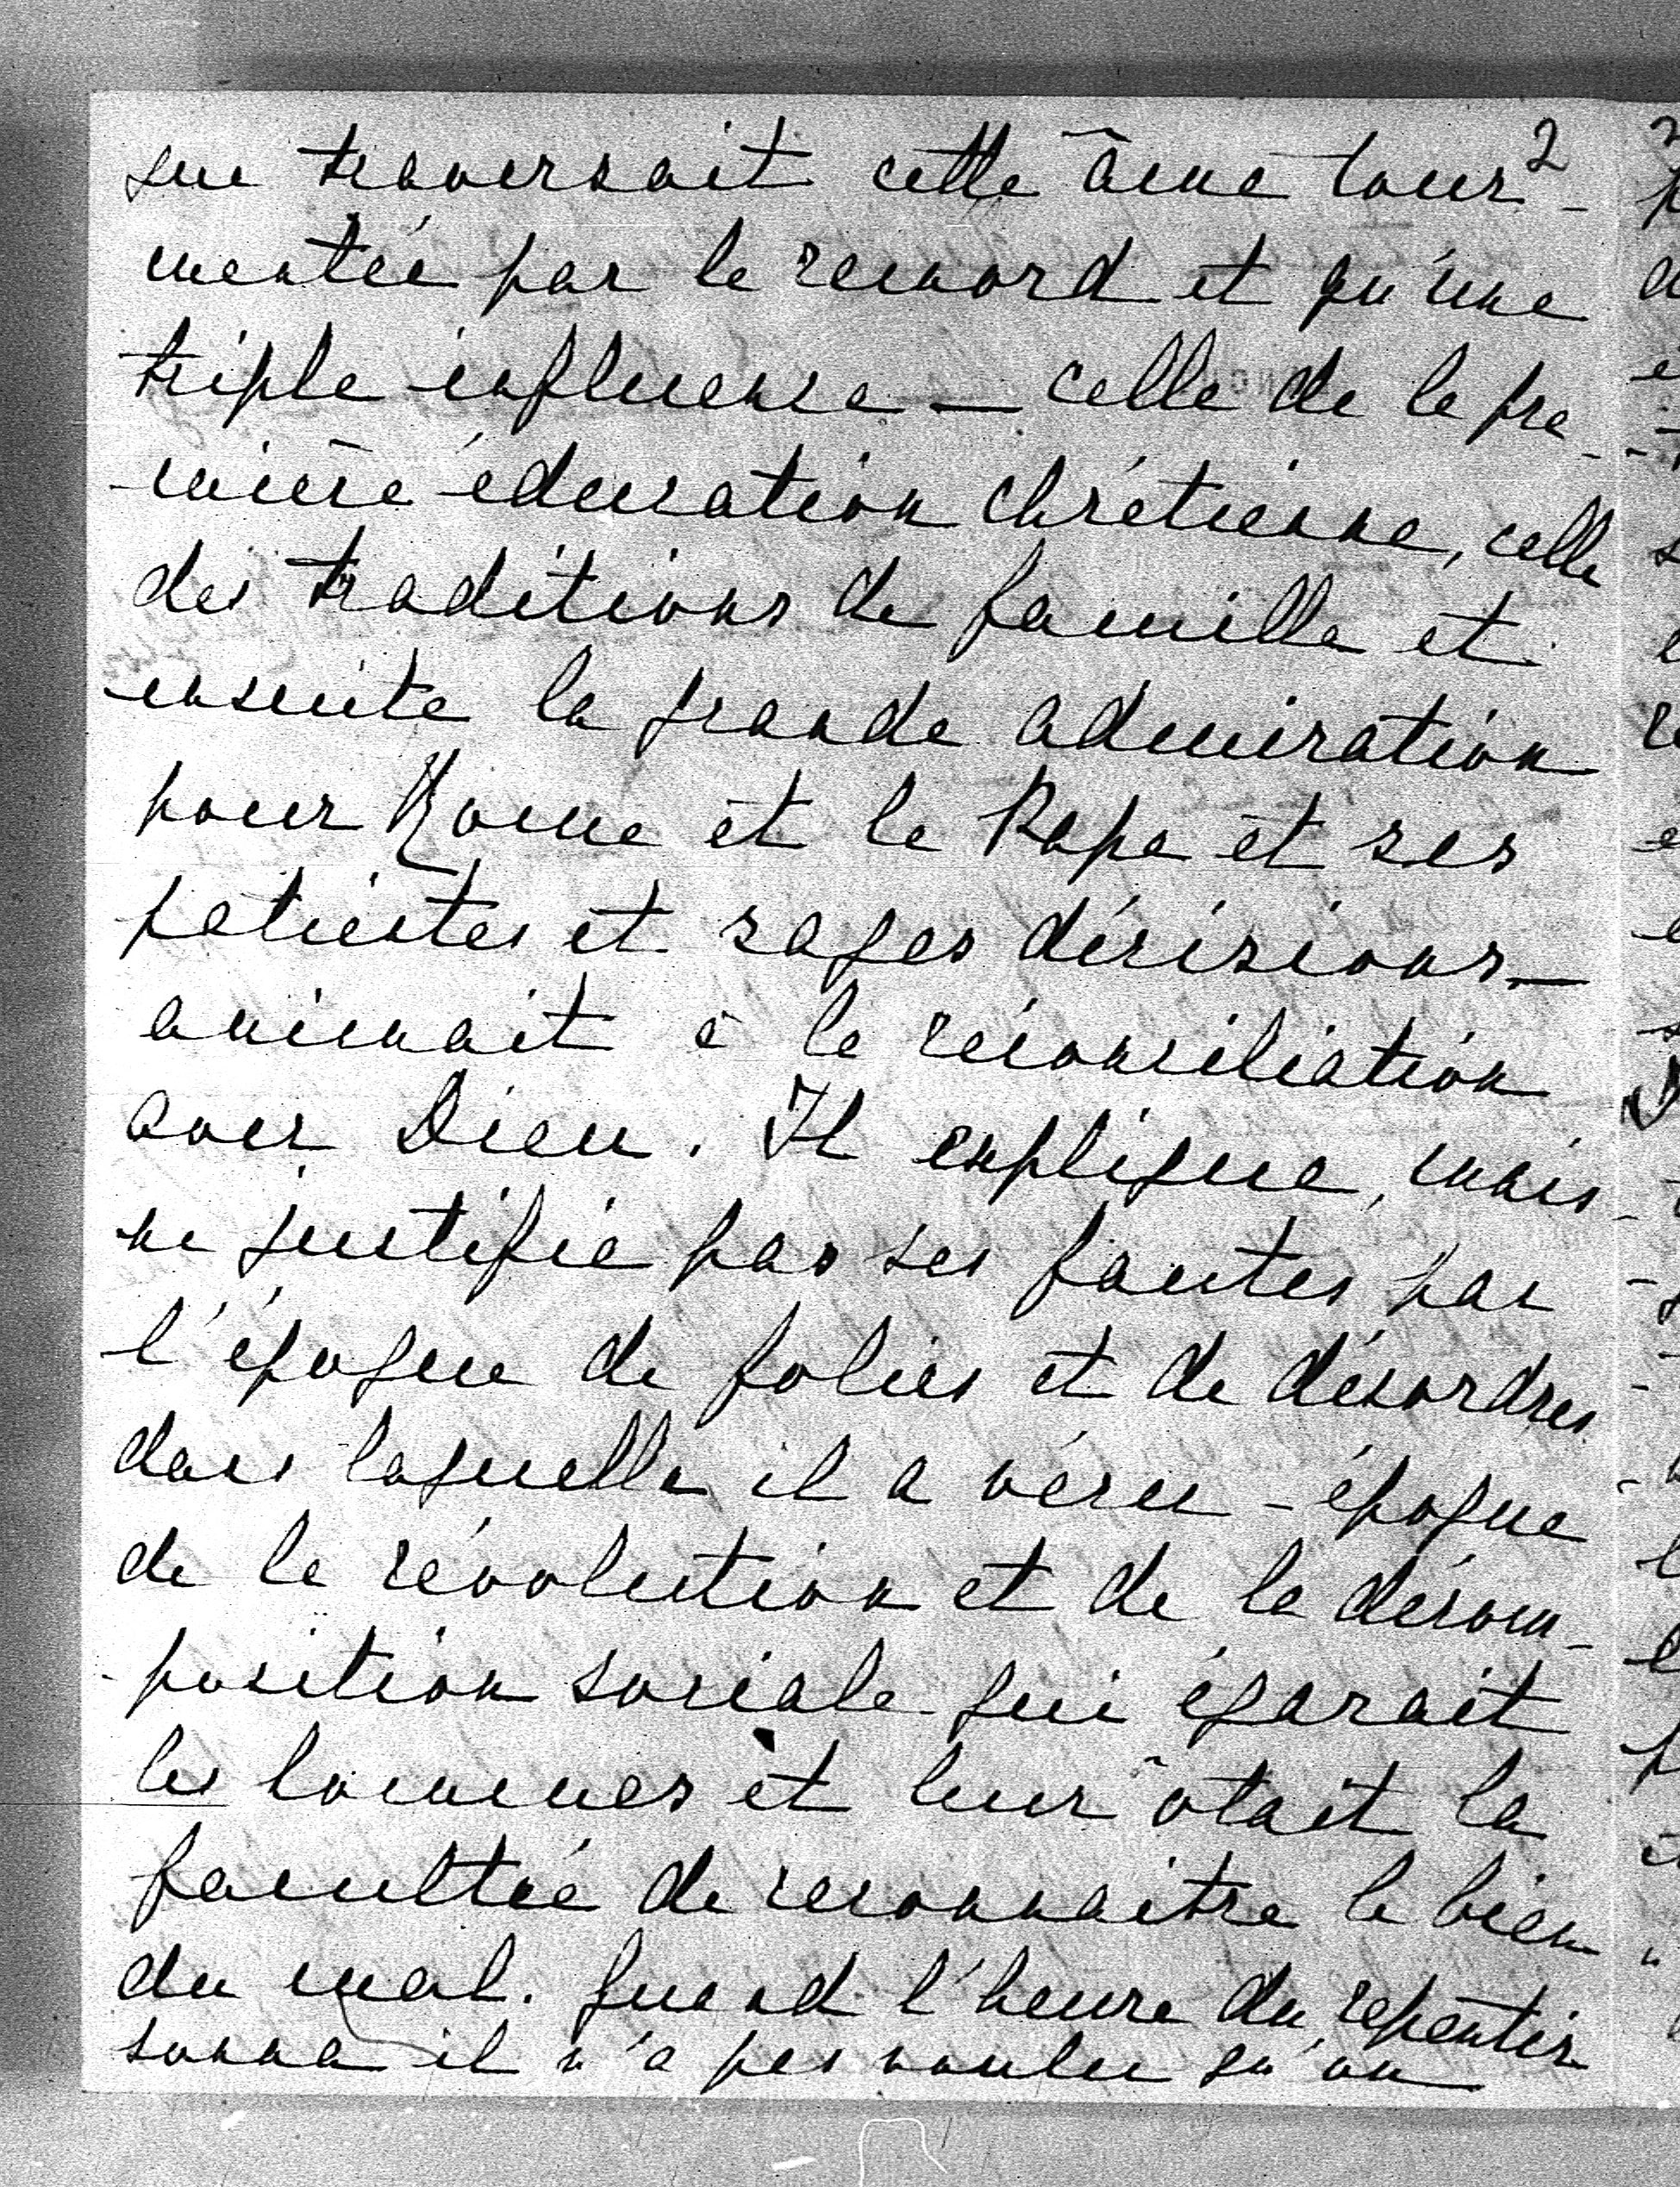 2
que traversait cette âme tour-
mentée par le remord et qu'une
triple influence — celle de la pre-
mière éducation chrétienne, celle
des traditions de famille et
ensuite la grande admiration
pour Rome et le Pape et ses
patientes et sages décisions —
animait à la réconciliation
avec Dieu. Il explique, mais
ne justifie pas ses fautes par
l'époque de folies et de désordres
dans laquelle il a vécu - époque
de la révolution et de la décom-
position sociale qui égarait
les hommes et leur ôtait la
facultée de reconnaitre le bien
du mal. quand l'heure du repentir
sonna il n'a pas voulu qu'on